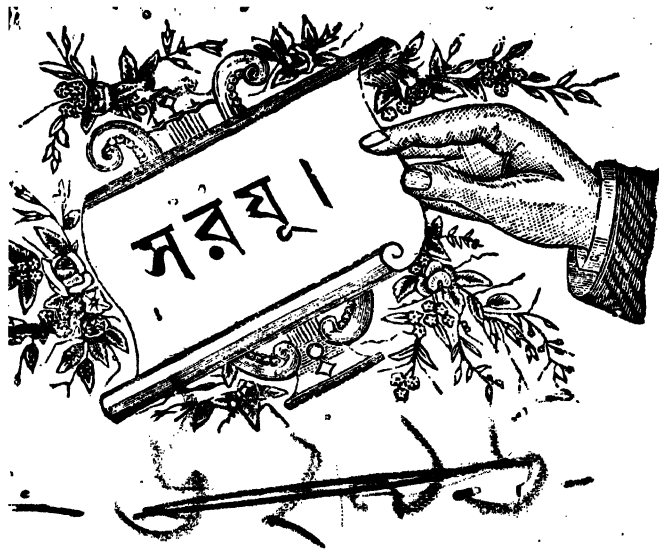 সরযূ।